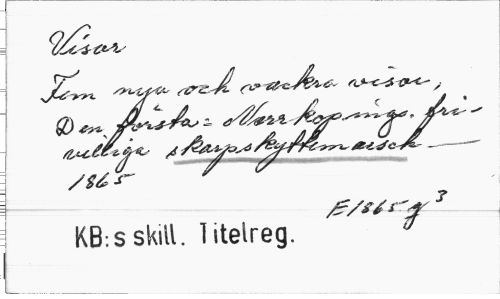 Visor
Fem nya och vackra visor,
Den första = Norrköpings. fri-
villiga skarpskyttemarsch
1865
E1865 g 3
KB:s skill. Titelreg.